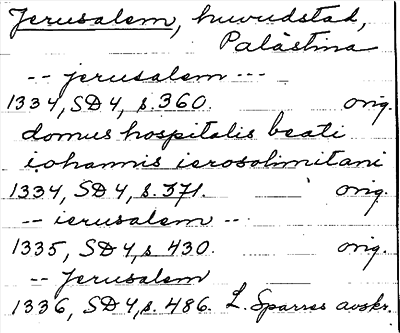 Jerusalem, huvudstad,
Palästina
-- jerusalem ---
1334, SD 4, s. 360. orig.
domus hospitalis beati
iohannis ierosolimitani
1334, SD 4, s. 371. orig.
-- ierusalem --
1335, SD 4, s 430. orig.
-- Jerusalem
1336, SD 4, s. 486. L. Sparres avskr.